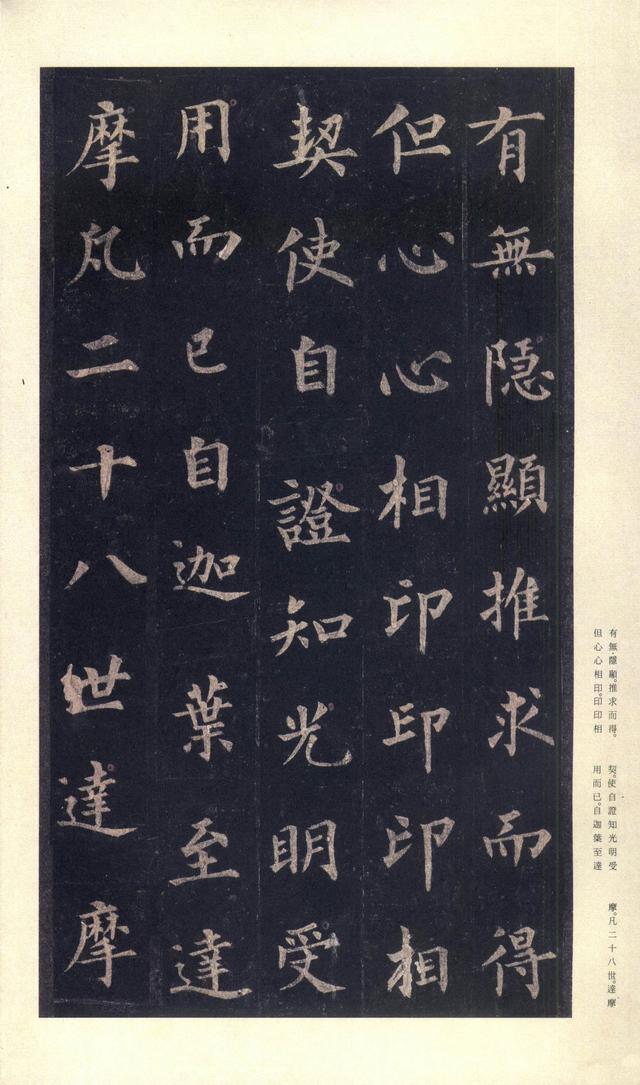 有無隱顯推求而得
但心心相印印印相
契使自證知光明受
用而已自迦葉至達
摩凡二十八世達摩
有無、隱顯。推求而得。
但心心相印。印印相
契。使自證知光明受
用而已。自迦葉至達
摩。凡二十八世。達摩